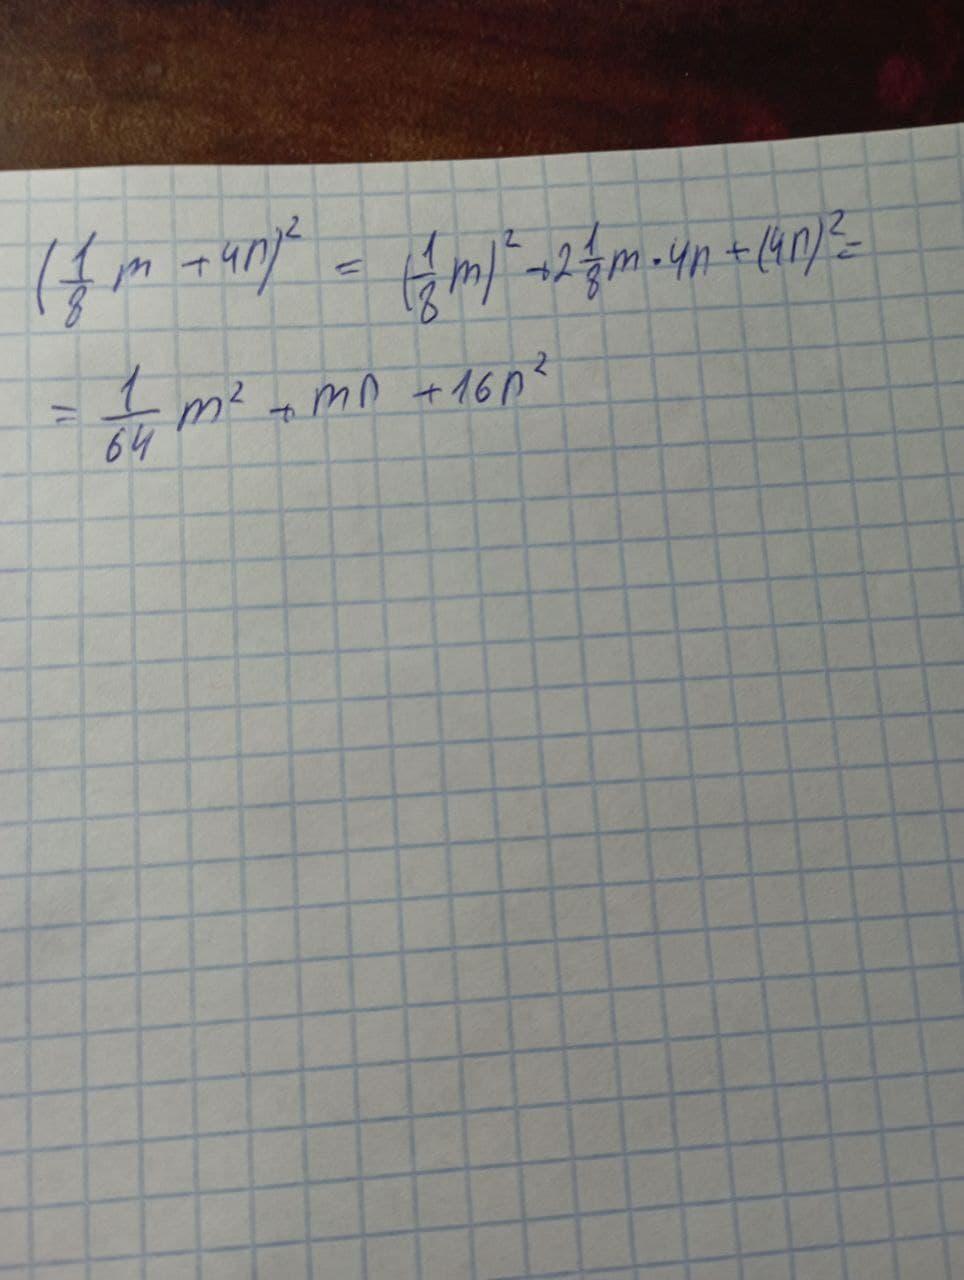 (1/8 m + 4n)² = (1/8 m)² + 2 1/8 m · 4n + (4n)² =
= 1/64 m² + mn + 16n²